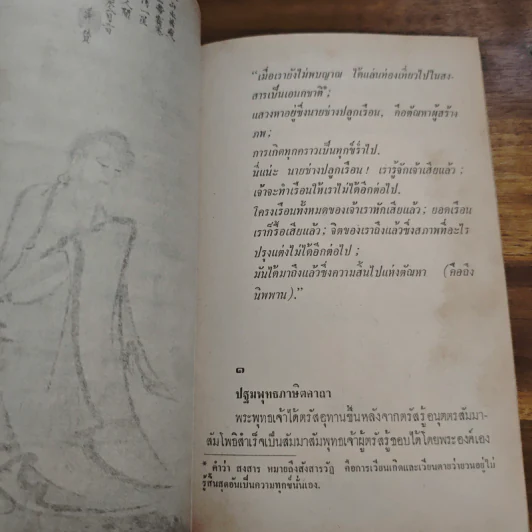 “เมื่อเรายังไม่พบญาณ ได้แล่นท่องเที่ยวไปในสง-
สารเป็นเอนกชาติ*;
แสวงหาอยู่ซึ่งนายช่างปลูกเรือน, คือตัณหาผู้สร้าง
ภพ;
การเกิดทุกคราวเป็นทุกข์ร่ำไป.
นี่แน่ะ นายช่างปลูกเรือน! เรารู้จักเจ้าเสียแล้ว;
เจ้าจะทำเรือนให้เราไม่ได้อีกต่อไป.
โครงเรือนทั้งหมดของเจ้าเราหักเสียแล้ว; ยอดเรือน
เราก็รื้อเสียแล้ว; จิตของเราถึงแล้วซึ่งสภาพที่อะไร
ปรุงแต่งไม่ได้อีกต่อไป;
มันได้มาถึงแล้วซึ่งความสิ้นไปแห่งตัณหา (คือถึง
นิพพาน).”
๑
ปฐมพุทธภาษิตคาถา
พระพุทธเจ้าได้ตรัสอุทานขึ้นหลังจากตรัสรู้อนุตตรสัมมา-
สัมโพธิสำเร็จเป็นสัมมาสัมพุทธเจ้าผู้ตรัสรู้ชอบได้โดยพระองค์เอง
* คำว่า สงสาร หมายถึงสังสารวัฏ คือการเวียนเกิดและเวียนตายว่ายวนอยู่ไม่
รู้สิ้นสุดอันเป็นความทุกข์นั่นเอง.